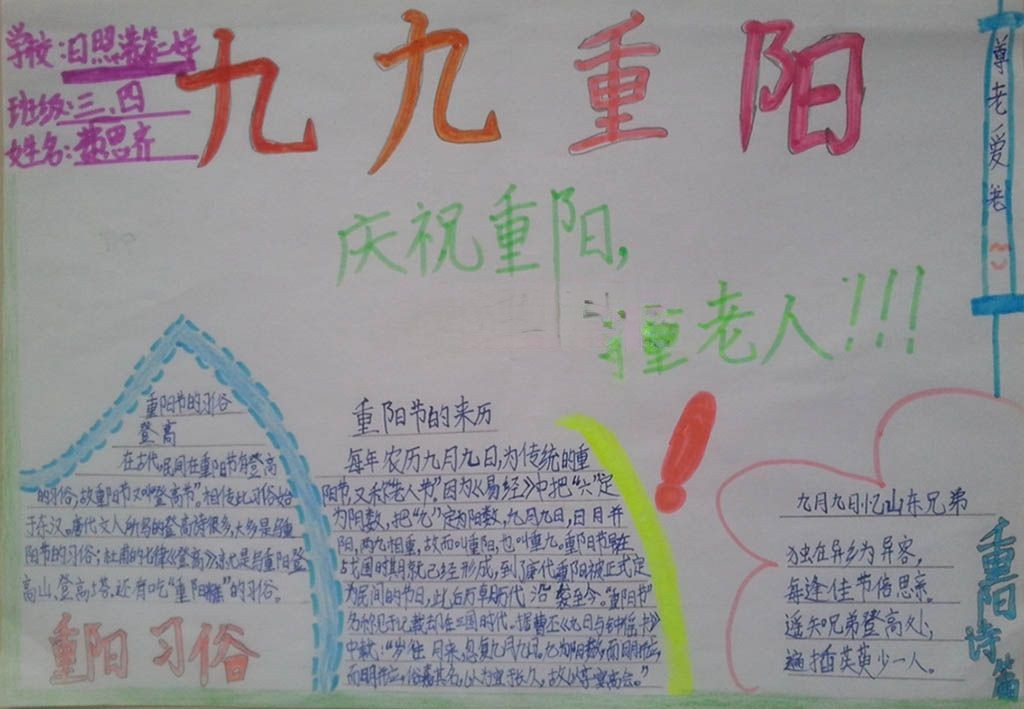 学校:日照
班级:三、四
姓名:思齐
九九重阳
尊老爱老
庆祝重阳,
重老人!!!
重阳节的习俗
登高
在古代,民间在重阳节有登高
的习俗,故重阳节又叫“登高节”。相传此习俗始
于东汉。唐代文人所写的登高诗很多,大多是写重
阳节的习俗;杜甫的七律《登高》,就是写重阳登
高山、登高塔。还有吃“重阳糕”的习俗。
重阳习俗
重阳节的来历
每年农历九月九日,为传统的重
阳节,又称《老人节》因为《易经》中把“六”定
为阴数,把“九”定为阳数,九月九日,日月并
阳,两九相重,故而叫重阳,也叫重九。重阳节早在
战国时期就已经形成,到了唐代重阳被正式定
为民间的节日,此后历朝历代沿袭至今。“重阳节”
名称见于记载却在三国时代。据曹丕《九日与钟繇书》
中载:“岁往月来,忽复九月九日。九为阳数,而日月并应,
而日月并应,俗嘉其名,以为宜于长久,故以享宴高会。”
九月九日忆山东兄弟
独在异乡为异客,
每逢佳节倍思亲。
遥知兄弟登高处,
遍插茱萸少一人。
重阳诗篇